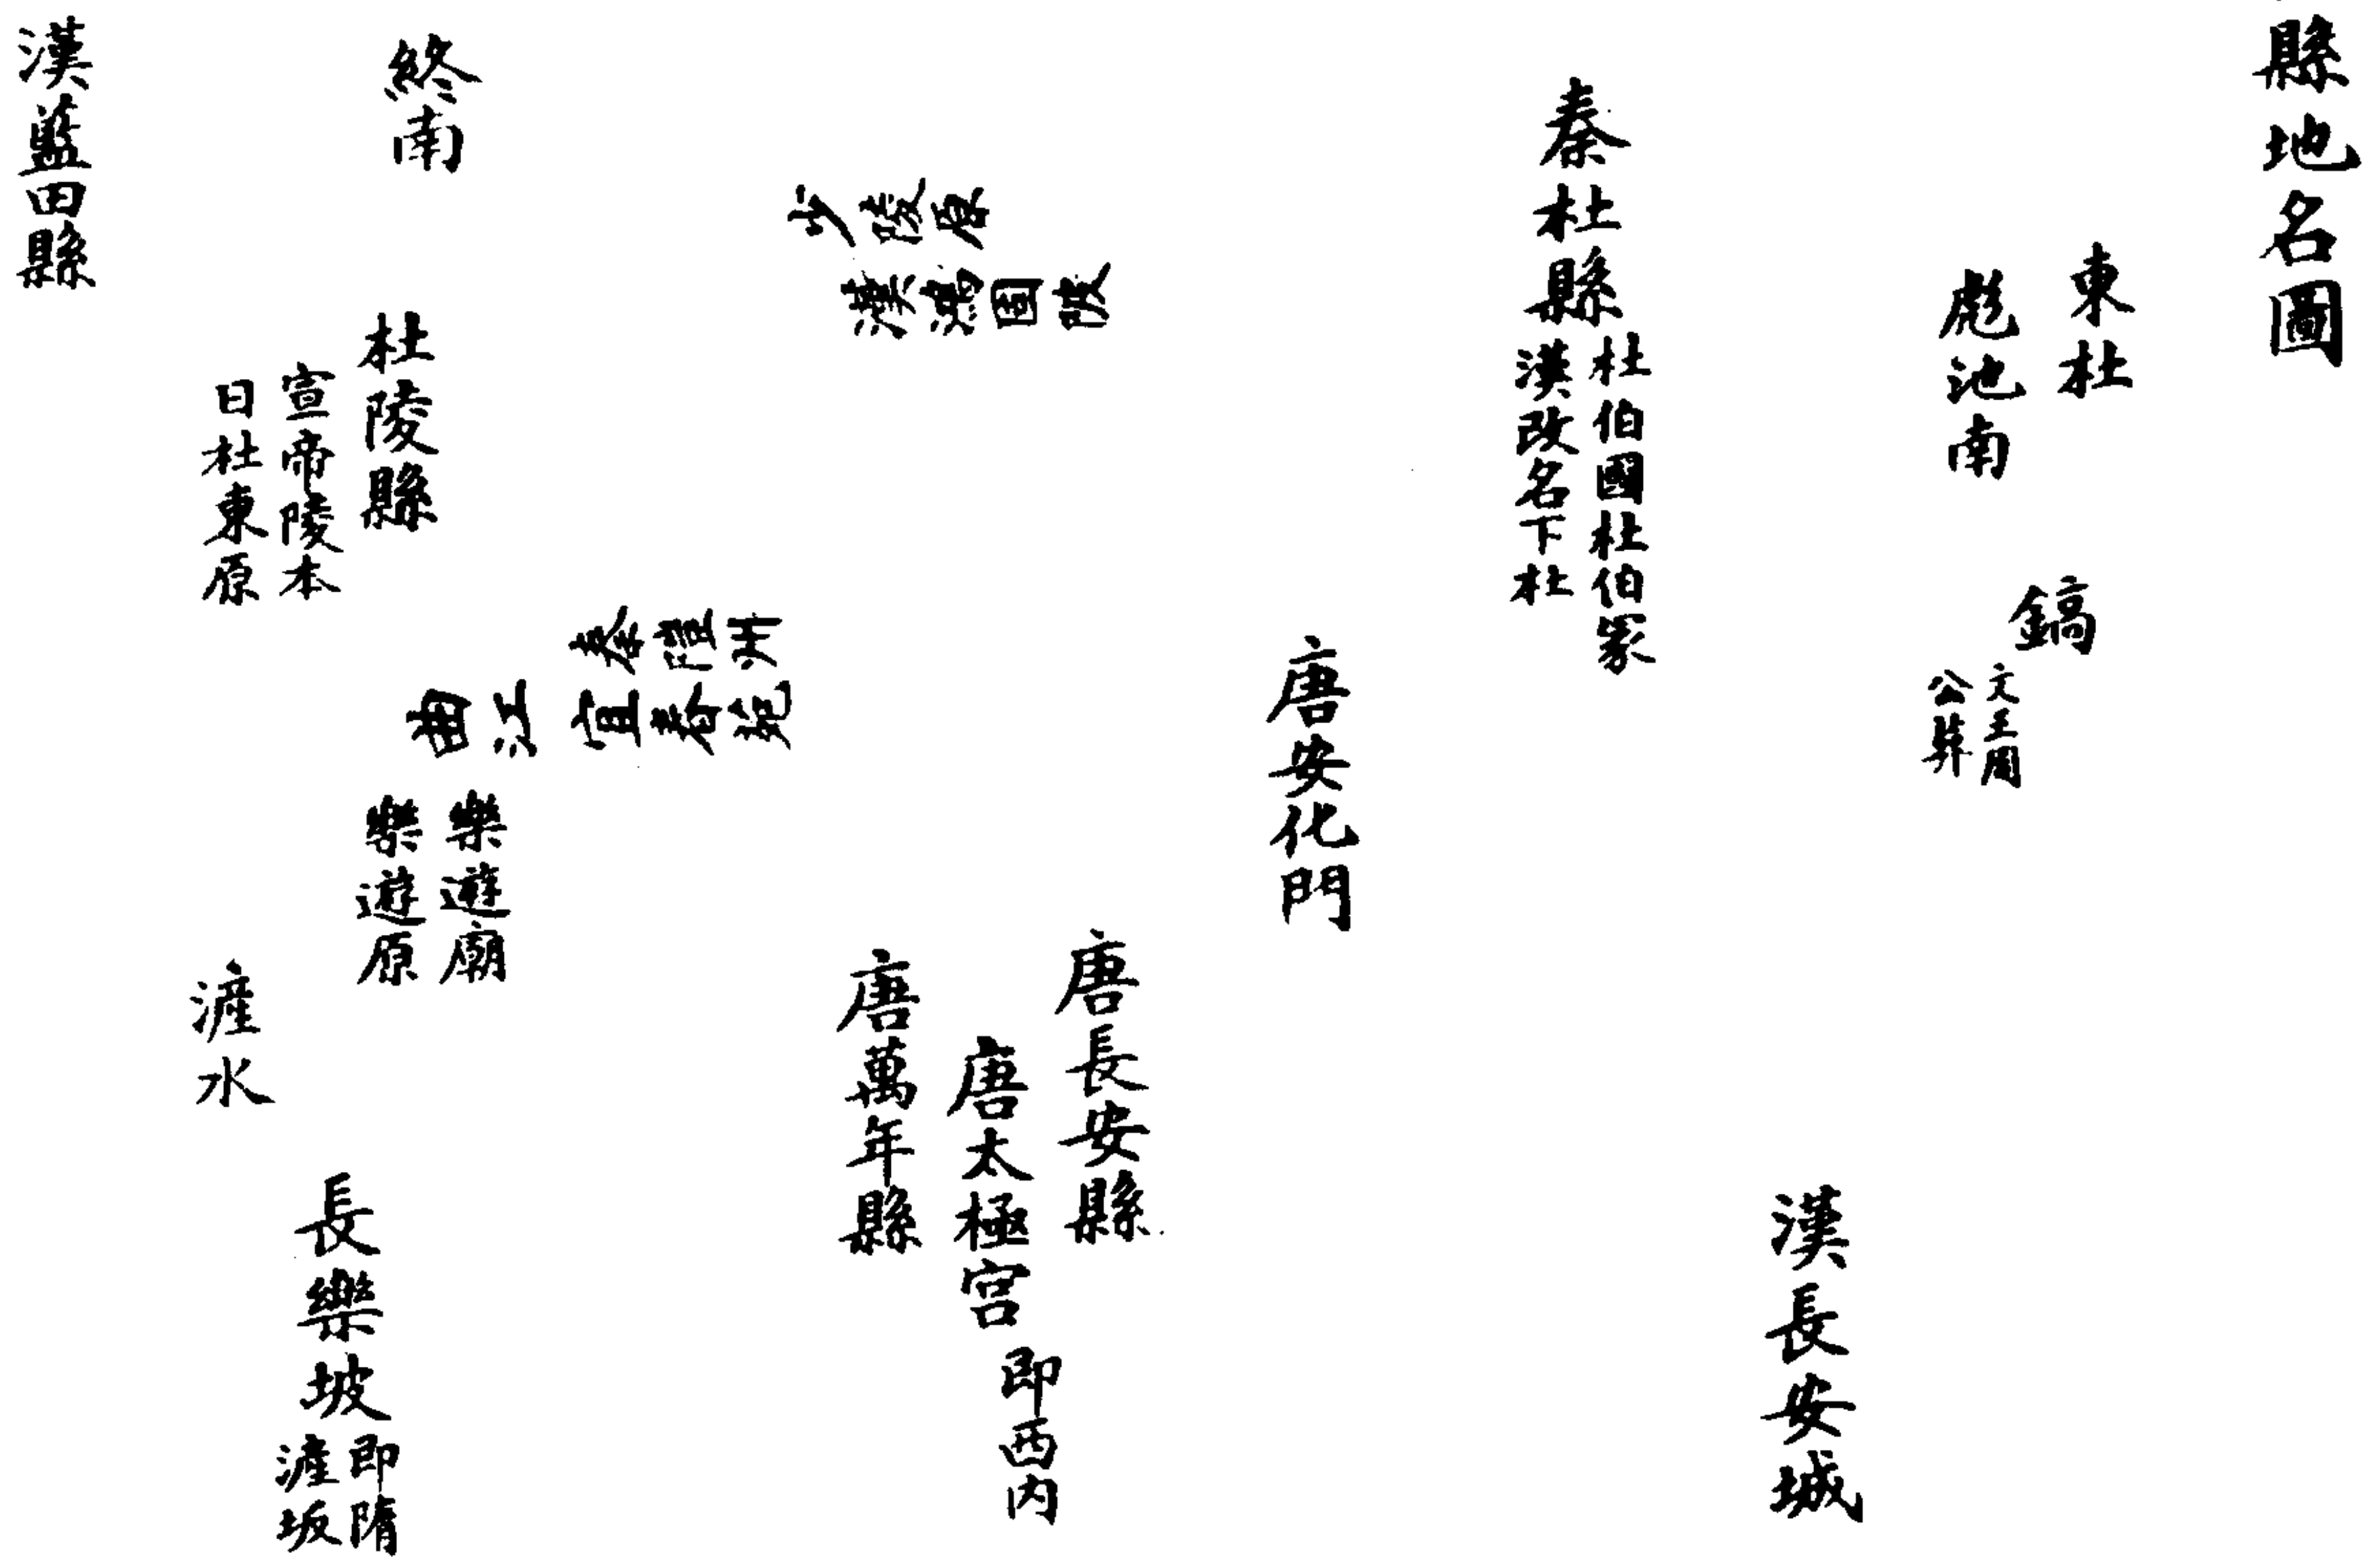 縣地名圖
東杜
彪池南
鎬
文王周
公葬
漢長安城
秦杜縣
杜伯國杜伯冢
漢改名下杜
唐安化門
唐長安縣
唐太極宮
即西内
唐萬年縣
曲江
宜春苑
樂遊廟
樂遊原
終南
杜陵縣
宣帝陵本
曰杜東原
滻水
長樂坡
即隋
滻坂
漢藍田縣